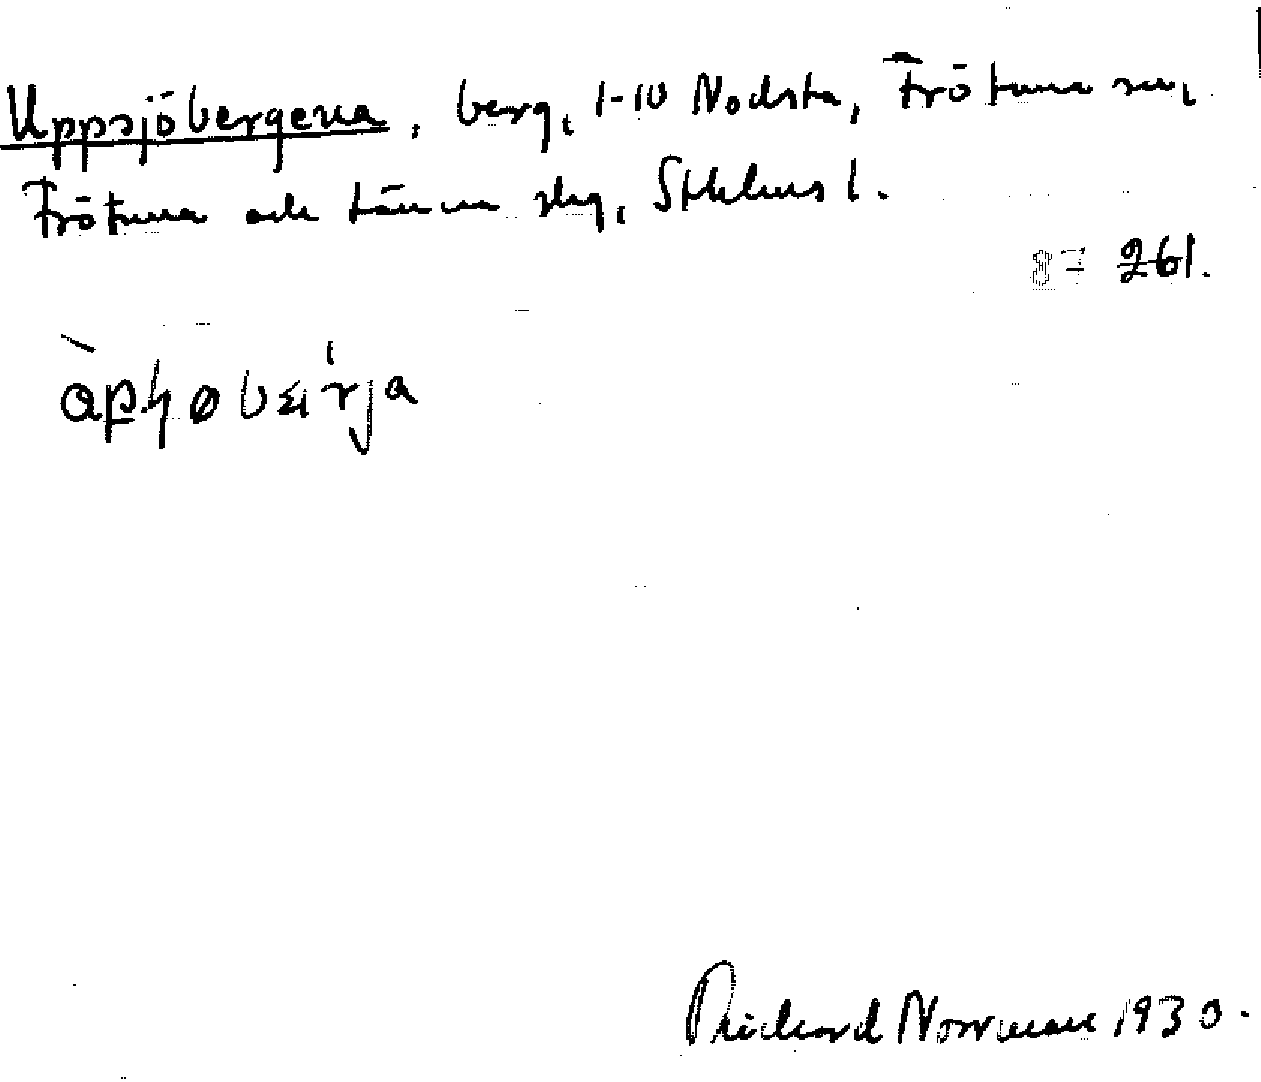 Uppsjöbergena, berg, 1-10 Nodsta, Frötuna sn,
Frötuna och Länna slg, Sthlms l.
261.
Richard Norrman 1930.